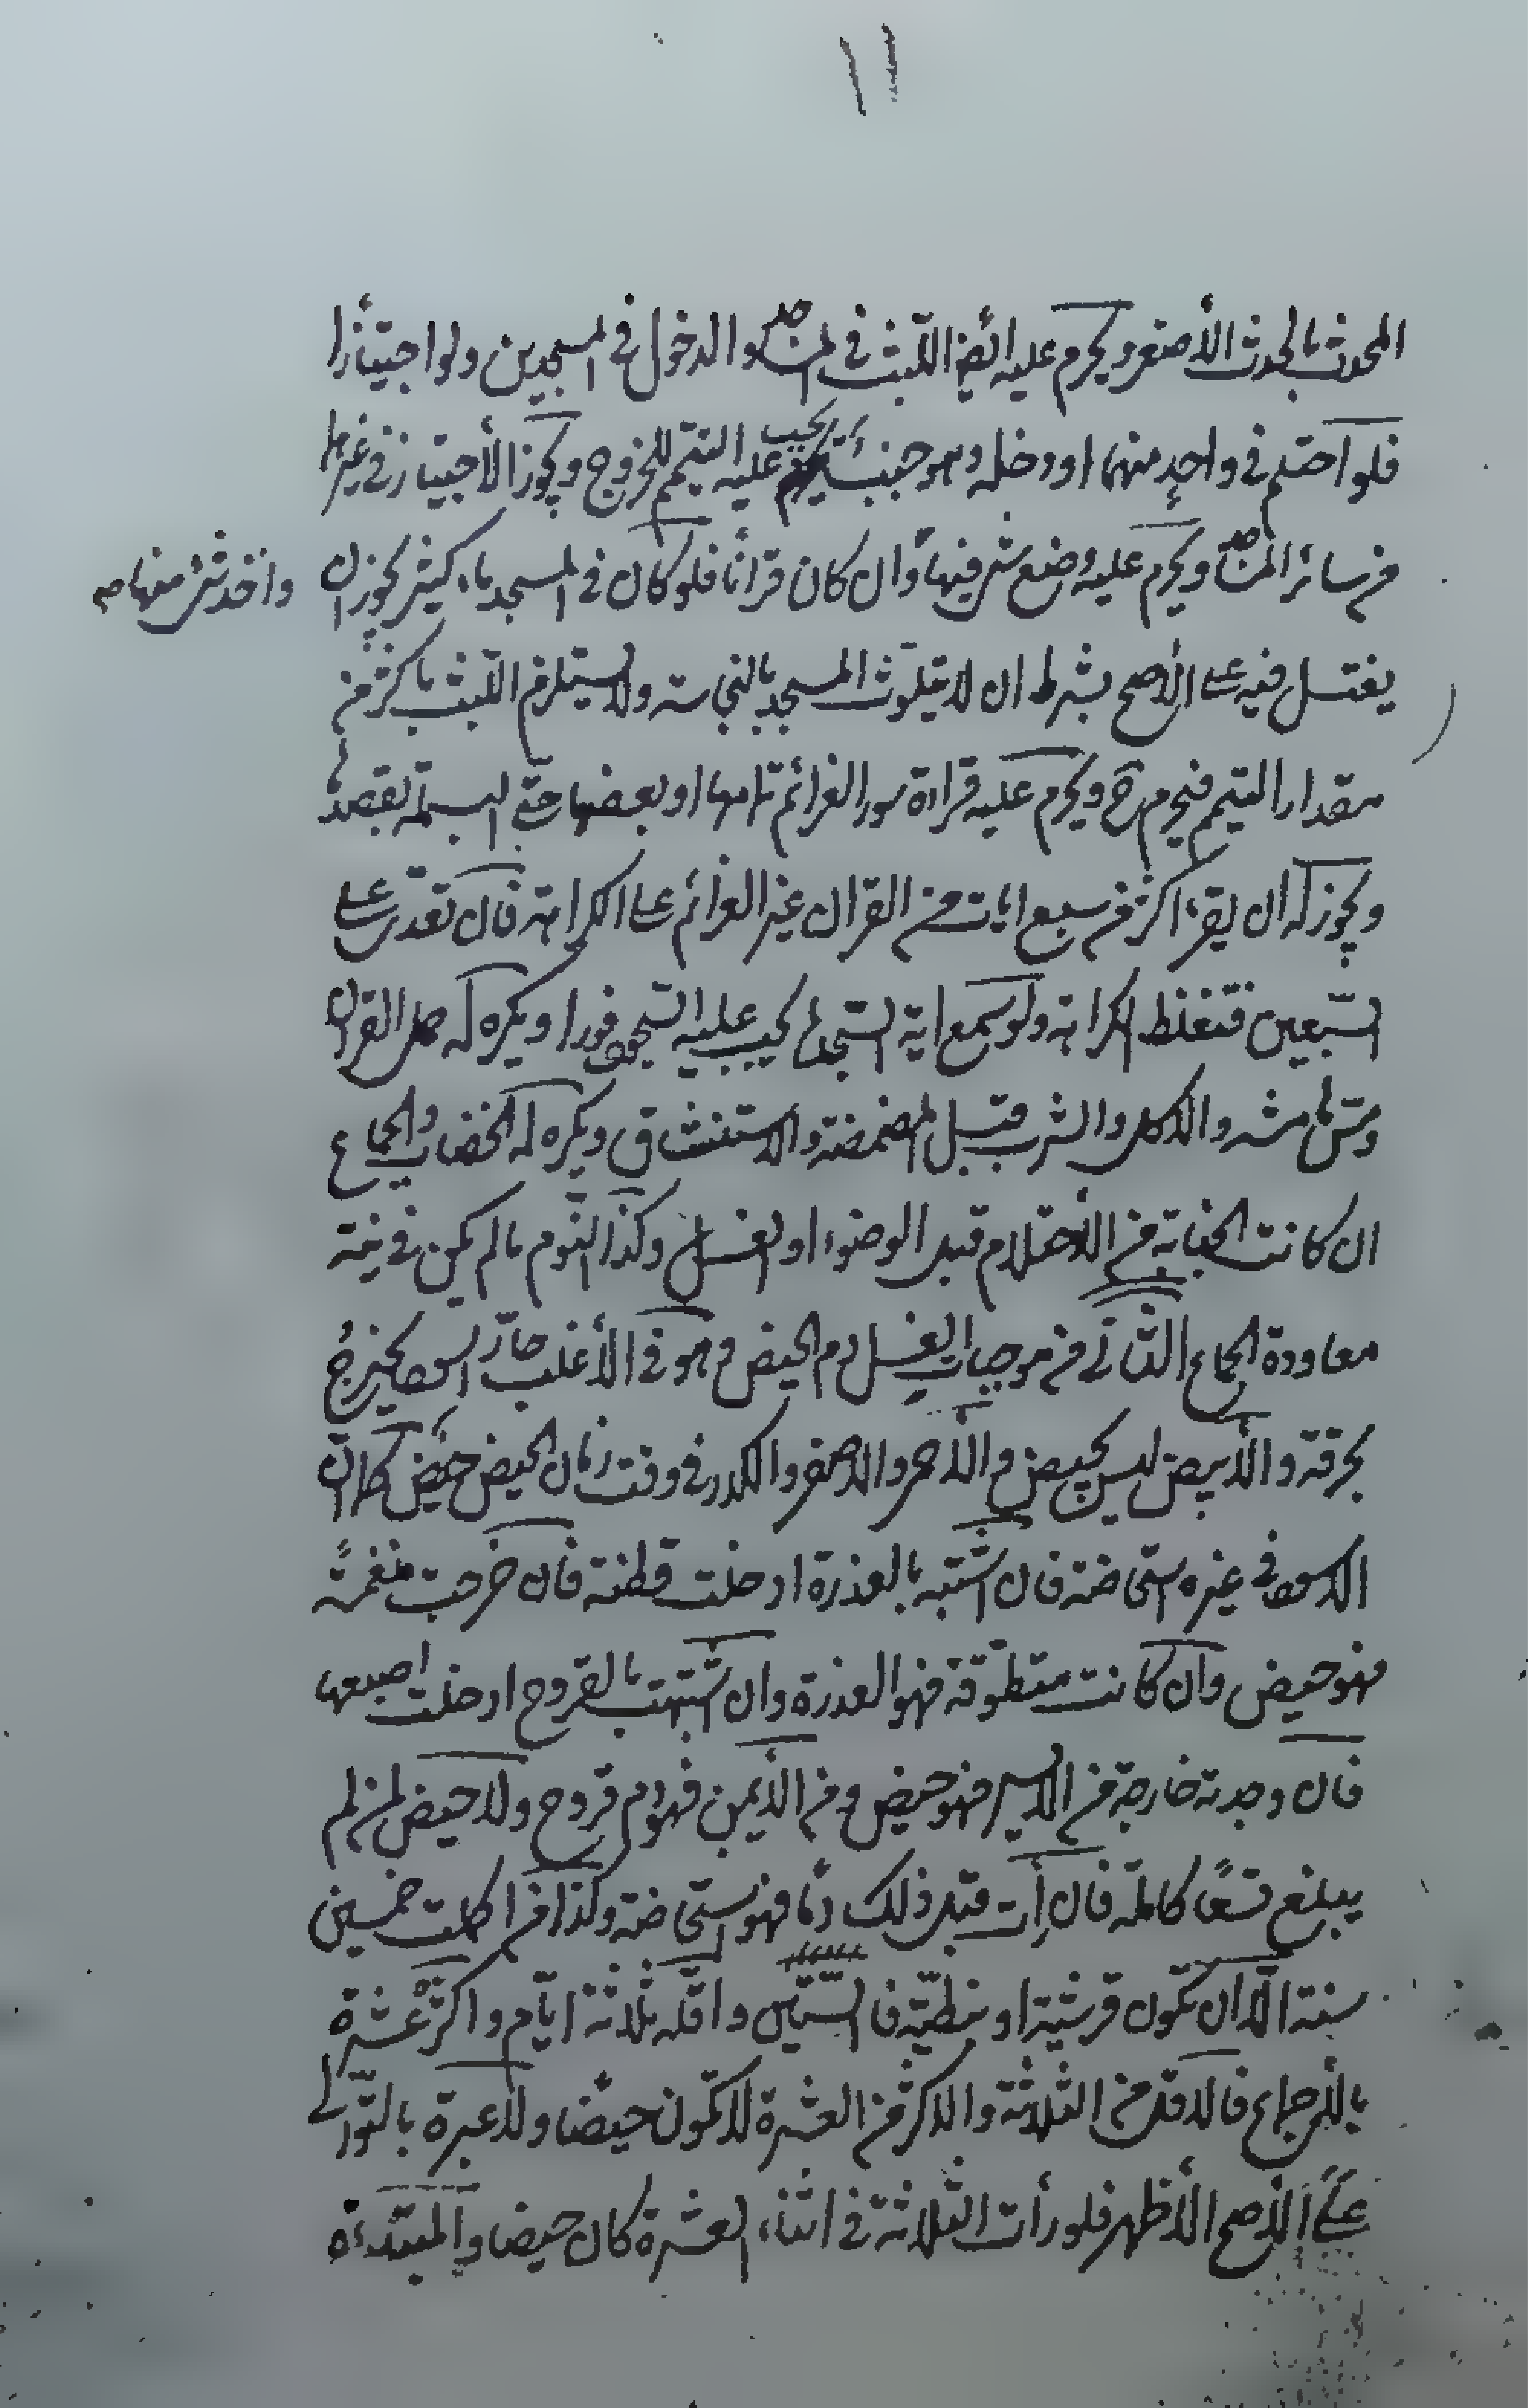 ١١
المحدث بالحدث الأصغر ويحرم عليه ائضا اللّبث في المساجد والدخول في المسجدين ولو اجتيأزا
فلو احتلم في واحدٍ منهما او دخله وهو جنب يجب عليه التيمّم للخروج ويجوز الأجتياز في غيرهما
من سائر المساجد ويحرم عليه وضع شئ فيها وان كان قرانا فلو كان في المسجد ماء كثير يجوز ان
واخذ شئ منها صح
يغتسل فيه على الأصح بشرط ان لا يتلوّث المسجد بالنجاسته ولا يستلزم اللّبث باكثر من
مقدار التيمم فيحرم ح ويحرم عليه قراءة سور العزائم تمامها او بعضها حتّى البسملة بقصدها
ويجوز له ان يقرء اكثر من سبع ايات من القران غير العزائم على الكراهة فان تعدّى على
السّبعين فتغلظ الكراهة ولو سمع اية السّجدة يجب عليه السّجود فورا ويكره له حمل القران
ومسّ هامشه والاكل والشرب قبل المضمضة والاستنشاق ويكره له الخضاب والجماع
ان كانت الجنابة من الأحتلام قبل الوضوء او الغسل وكذا النّوم ما لم يكن في نيّته
معاودة الجماع الثّاني من موجبات الغسل دم الحيض وهو في الأغلب حارّ اسود يخرجُ
بحرقة والأبيض ليس بحيض والأحمر والاصفر والاكدر في وقت زمان الحيض حيض كما انّ
الاسود في غيره استحاضة فان اشتبه بالعذرة ادخلت قطنة فان خرجت منغمسة
فهو حيض وان كانت متطوّقة فهو العذرة وان اشتبهت بالقروح ادخلت اصبعها
فان وجدته خارجة من الايسر فهو حيض ومن الأيمن فهو دم قروح ولا حيض لمن لم
يبلغ تسعًا كاملة فان رأت قبل ذلك دمًا فهو استحاضة وكذا من اكملت خمسين
سنة الّا ان تكون قرشيّة او نبطيّة فالستّين واقلّه ثلاثة ايّام واكثره عشرة
بالأجماع فالاقل من الثلاثة والاكثر من العشرة لا تكون حيضا ولا عبرة بالتّوالي
على الأصح الأظهر فلو رأت الثّلاثة في اثناء العشرة كان حيضا والمبتدءة